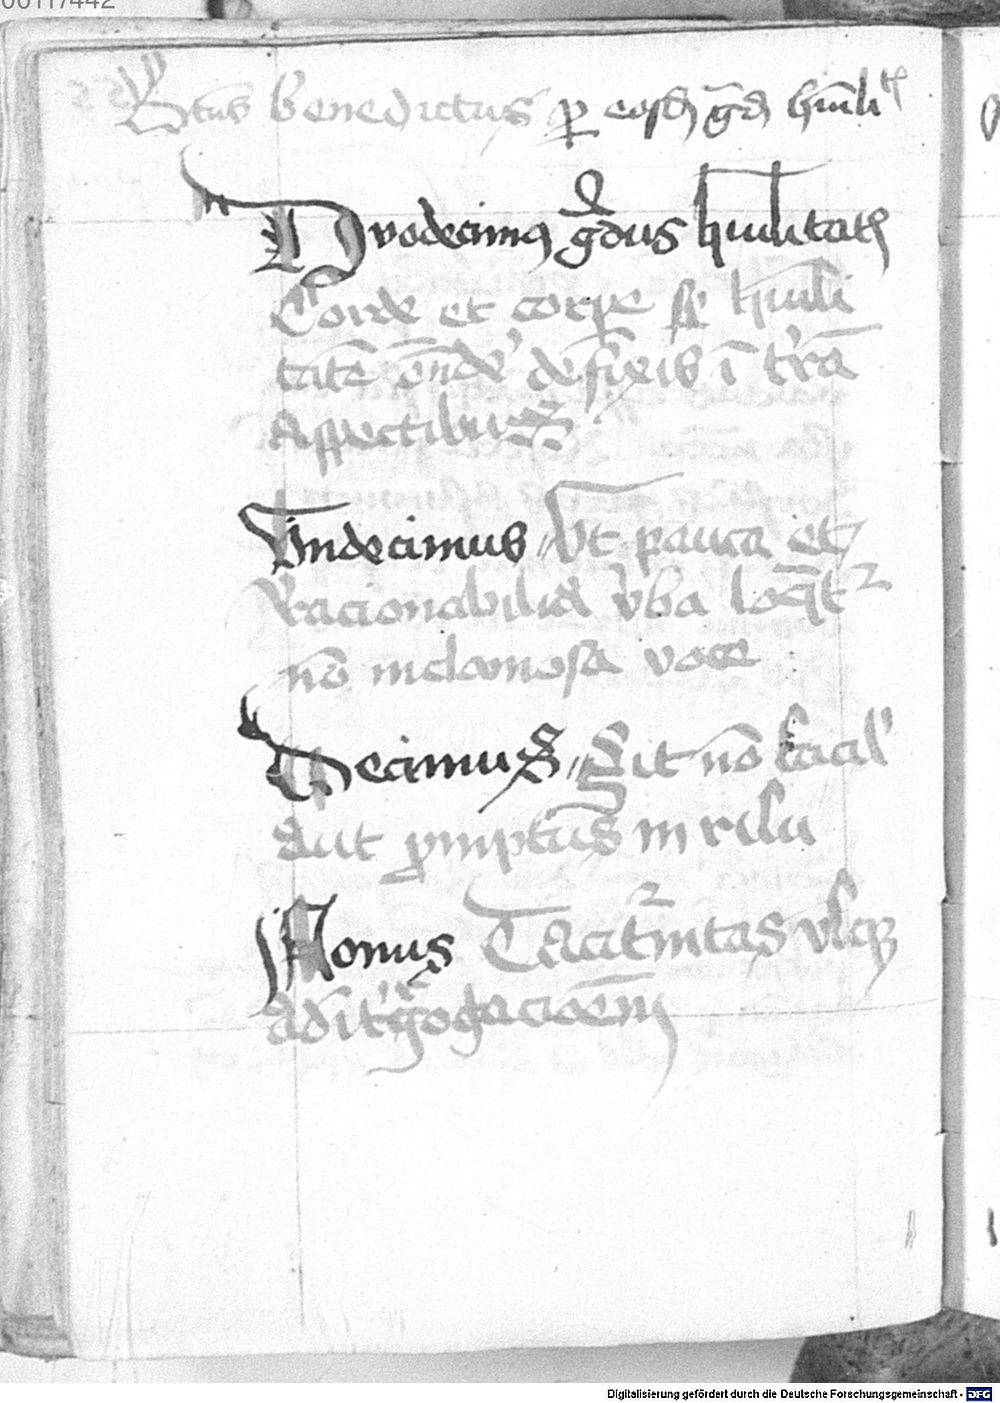 Btus benedictus p eosd gd humilit
Duodecimus gdus humilitatis
Corde et corpe sp humili
tatē ōnde defixis ī trā
Aspectibus
Vndecimus Vt pauca et
Racionabilia vba loqt
nō inclamosa voce
Decimus Sit nō facil
aut pmptus in risu
Nonus Tacitnitas vsq
ad itrogacioem
Digitalisierung gefördert durch die Deutsche Forschungsgemeinschaft - DFG